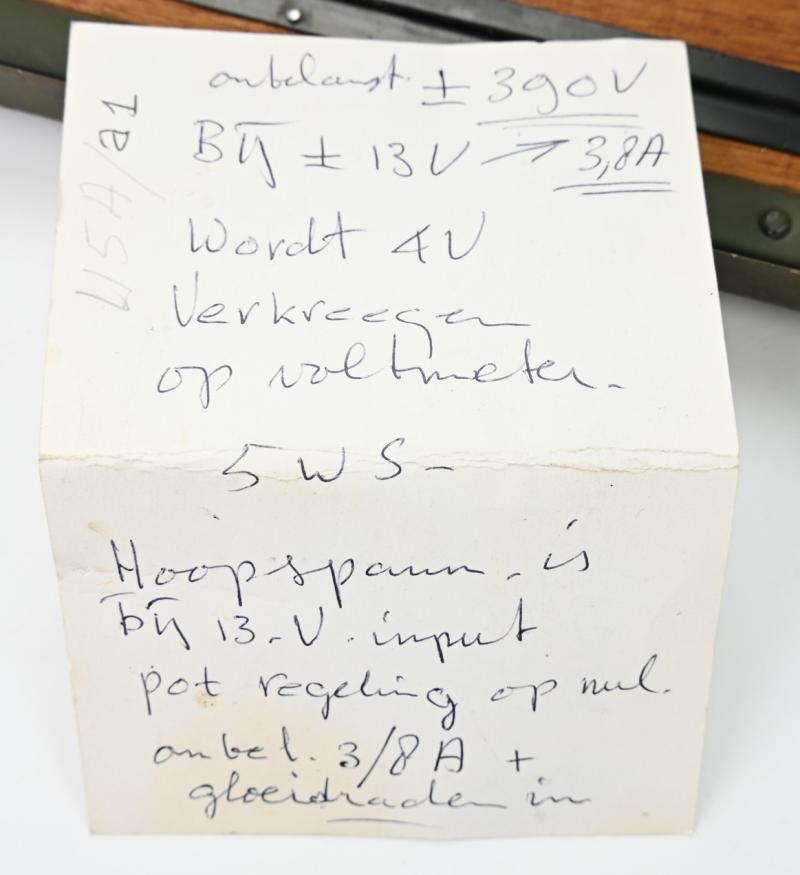 onbelanst. ± 390V
Bij ± 13V → 3,8A
Wordt 4V
Verkreegen
op voltmeter.
5 W S -
Hoopspann. is
bij 13.V. input
pot regeling op nul.
onbel. 3/8A +
gloeidraden in
W5A/a1